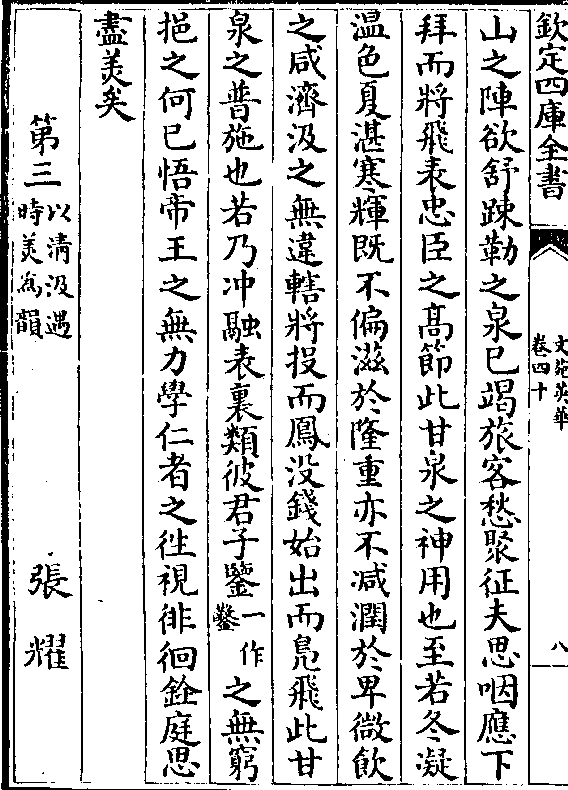 欽定四庫全書
文苑英華
卷四十
八
山之陣欲舒踈勒之泉已竭旅客愁聚征夫思咽應下
拜而將飛表忠臣之高節此甘泉之神用也至若冬凝
温色夏湛寒輝既不偏滋於隆重亦不减潤於卑微飲
之咸濟汲之無違轄將投而鳳没錢始出而鳬飛此甘
泉之普施也若乃冲融表裏類彼君子鑒一作鑿之無窮
挹之何已悟帝王之無力學仁者之徃視徘徊銓庭思
盡美矣
第三以清汲遇時美為韻
張耀